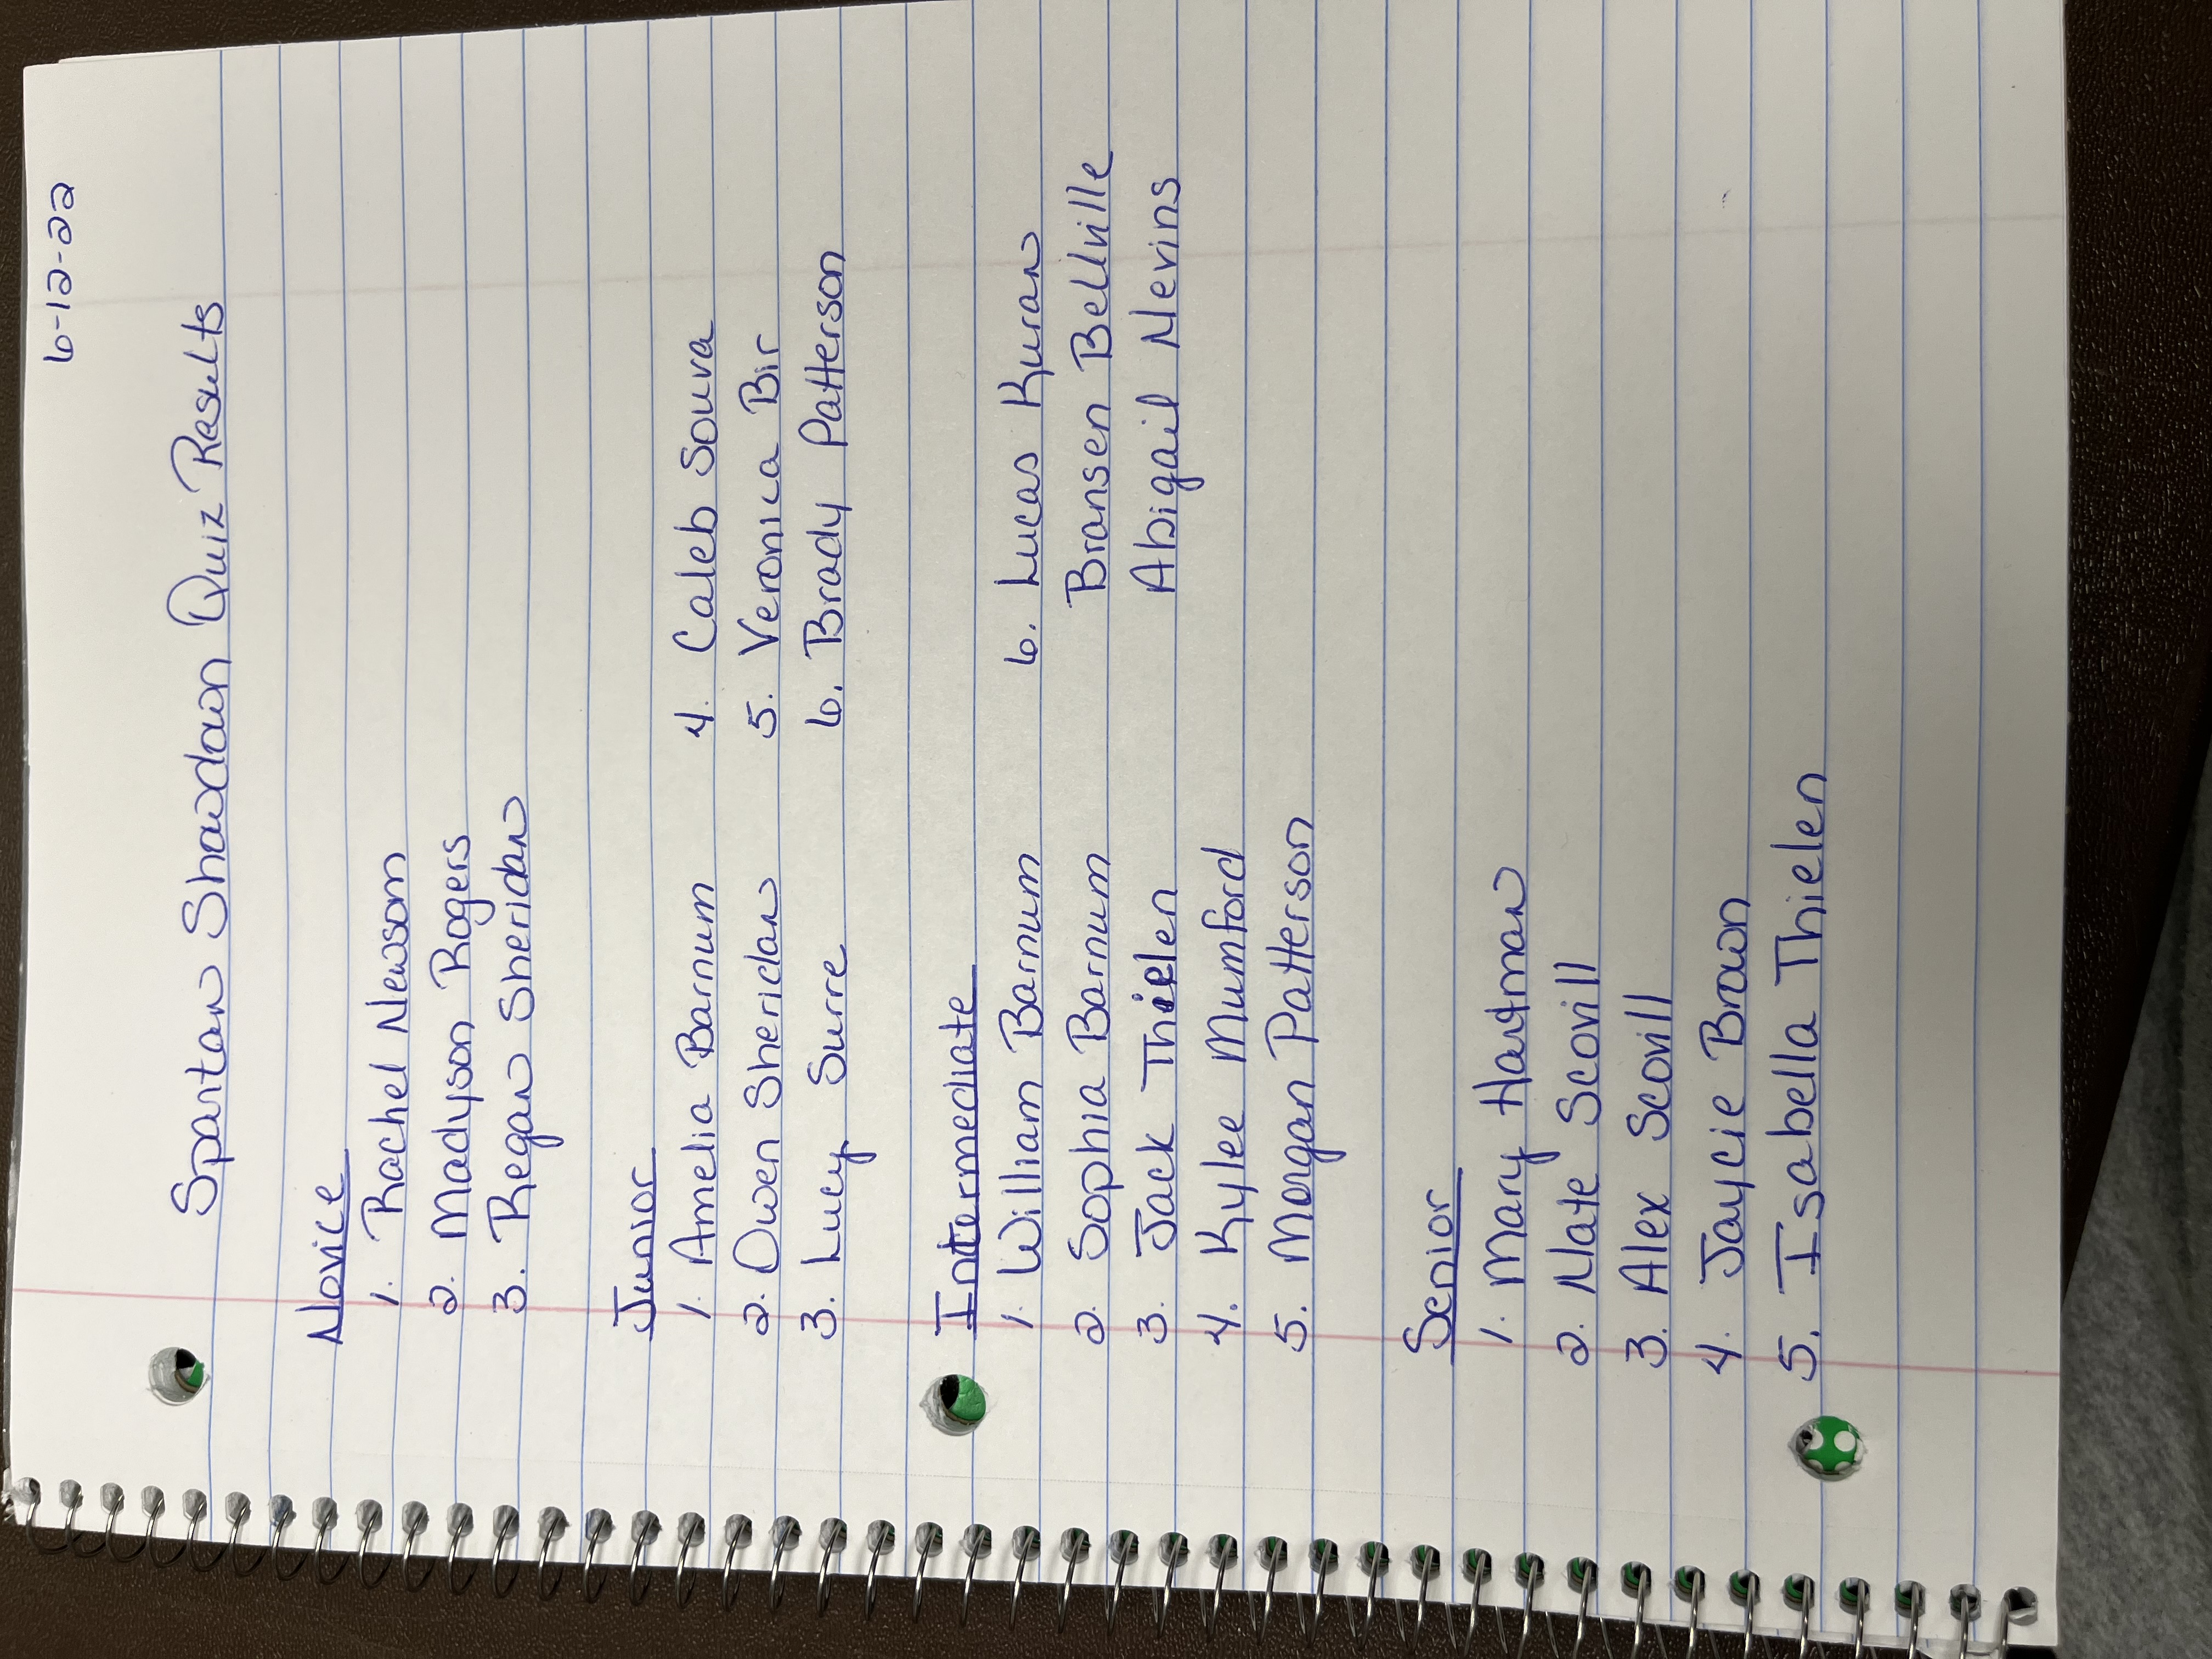 6-12-22
Spartan Showdown Quiz Results
Novice
1. Rachel Newsom
2. Madyson Rogers
3. Regan Sheridan
Junior
1. Amelia Barnum 4. Caleb Souva
2. Owen Sheridan 5. Veronica Bir
3. Lucy Surre 6. Brady Patterson
Intermediate
1. William Barnum 6. Lucas Kuran
2. Sophia Barnum Bransen Bellville
3. Jack Thielen Abigail Nevins
4. Kylee Mumford
5. Morgan Patterson
Senior
1. Mary Hartman
2. Nate Scovill
3. Alex Scovill
4. Jaycie Brown
5. Isabella Thielen